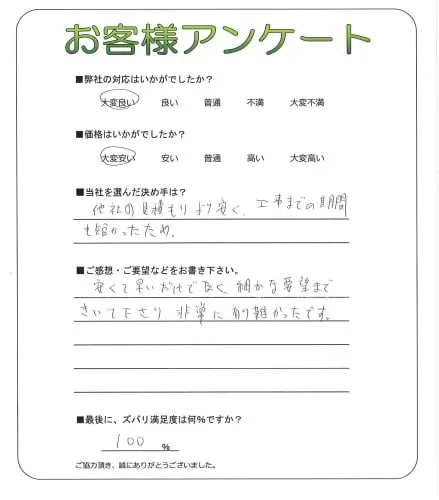 お客様アンケート
■弊社の対応はいかがでしたか?
大変良い 良い 普通 不満 大変不満
■価格はいかがでしたか?
大変安い 安い 普通 高い 大変高い
■当社を選んだ決め手は?
他社の見積もりより安く、工事までの期間
も短かったため。
■ご感想・ご要望などをお書き下さい。
安くて早いだけで良く、細かな要望まで
きいて下さり、非常に有り難かったです。
■最後に、ズバリ満足度は何%ですか?
100 %
ご協力頂き、誠にありがとうございました。